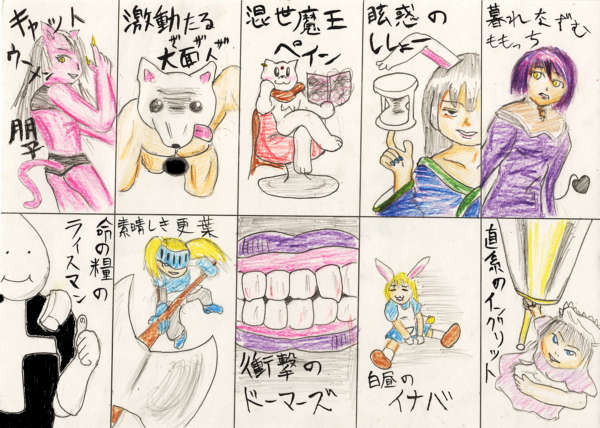 キャット
ウーメン
朋平
激動たる
大面人
混世魔王
ペイン
眩惑の
ししょー
暮れなずむ
ももっち
命の糧の
ライスマン
素晴しき更葉
衝撃の
ドーマーズ
白昼の
イナバ
直系のイングリット